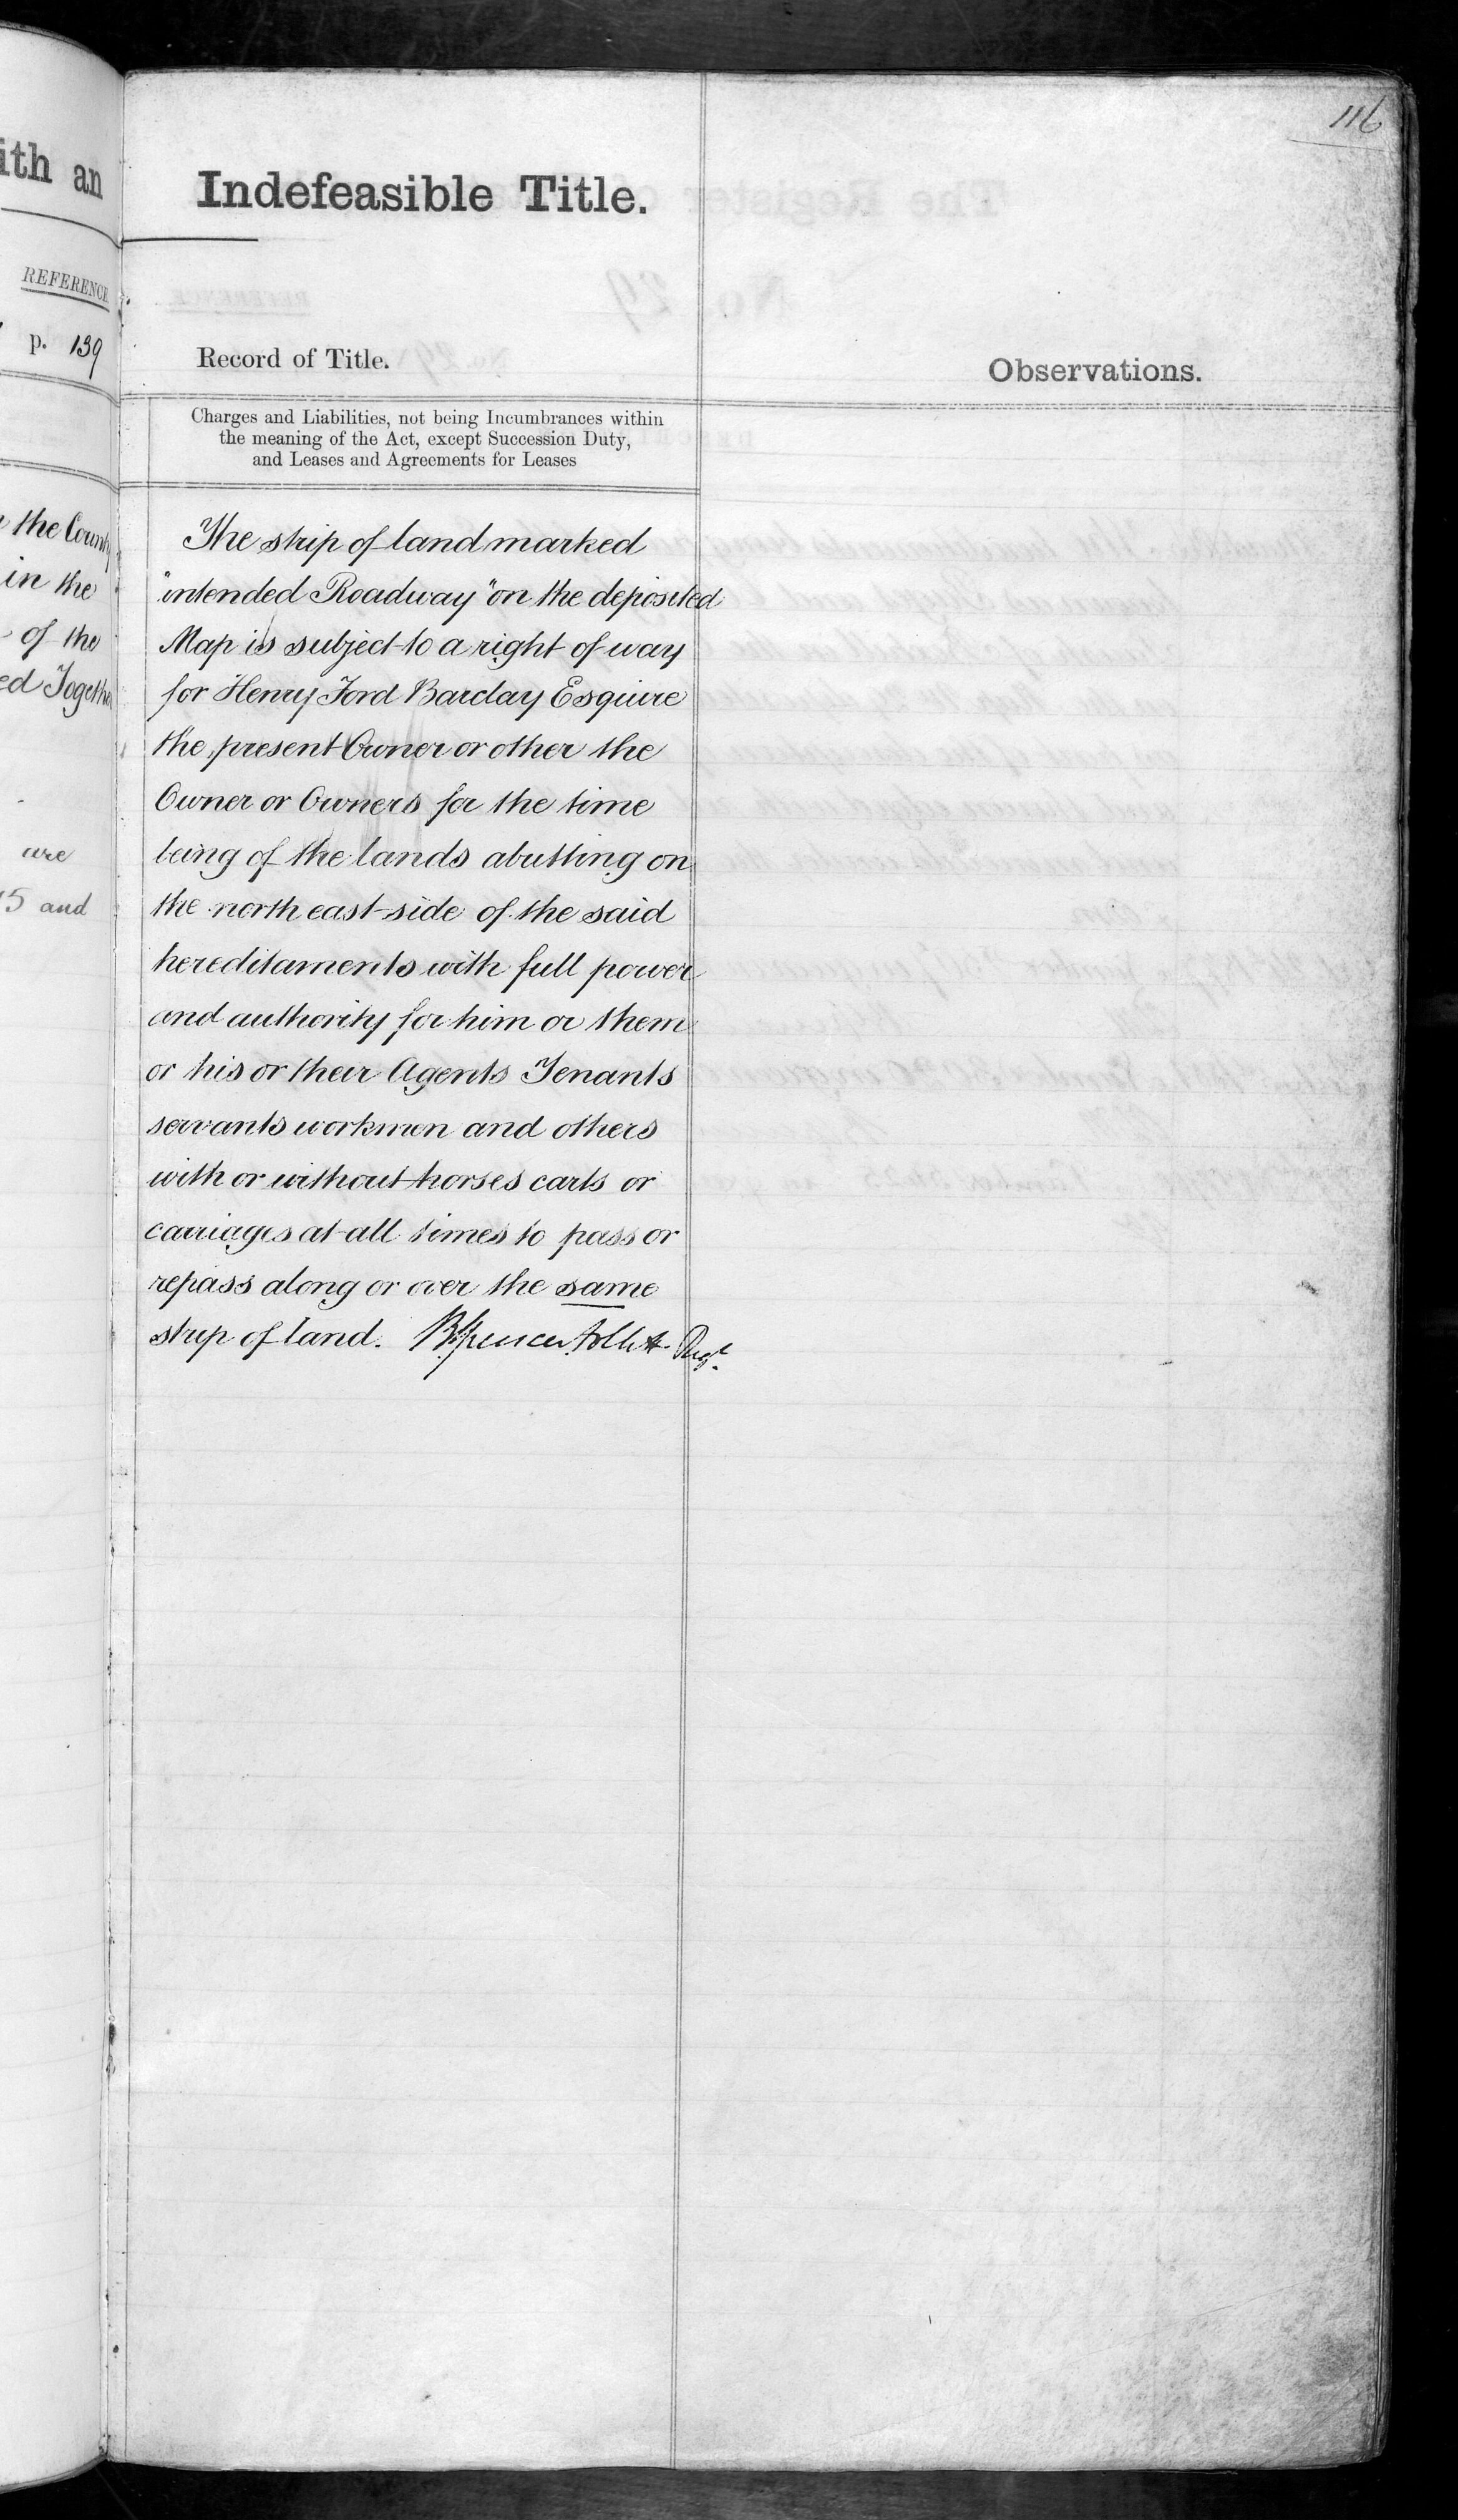 ith an
REFERENCE
p. 139
the County
in the
of the
ed Together
are
15 and
116
Indefeasible Title.
Record of Title.
Observations.
Charges and Liabilities, not being Incumbrances within
the meaning of the Act, except Succession Duty,
and Leases and Agreements for Leases
The strip of land marked
"intended Roadway" on the deposited
Map is subject to a right of way
for Henry Ford Barclay Esquire
the present Owner or other the
Owner or Owners for the time
being of the lands abutting on
the north east side of the said
hereditaments with full power
and authority for him or them
or his or their Agents Tenants
servants workmen and others
with or without horses carts or
carriages at all times to pass or
repass along or over the same
strip of land. B. Spencer Follett Regr.